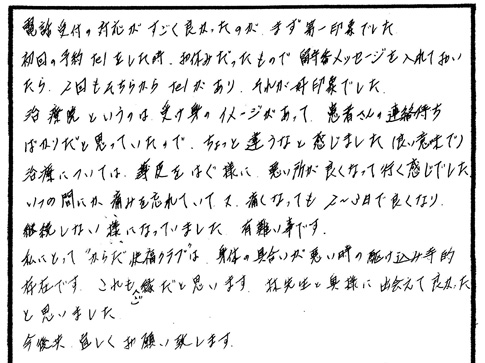 電話受付の対応がすごく良かったのが、まず第一印象でした
初回の予約telをした時、お休みだったもので留守番メッセージを入れておい
たら、2回もそちらからtelがあり、それが好印象でした。
治療院というのは受け身のイメージがあって、患者さんの連絡待ち
ばかりだと思っていたので、ちょっと違うなと感じました(良い意味で)
治療については、薄皮をはぐ様に、悪い所が良くなって行く感じでした。
いつの間にか痛みを忘れていて、又、痛くなっても2〜3日で良くなり、
継続しない様になっていました。有難い事です。
私にとって"からだ快福クラブ"は、身体の具合いが悪い時の駆け込み寺的
存在です。これもご縁だと思います。林先生と奥様に出会えて良かった
と思いました
今後共、宜しくお願い致します。